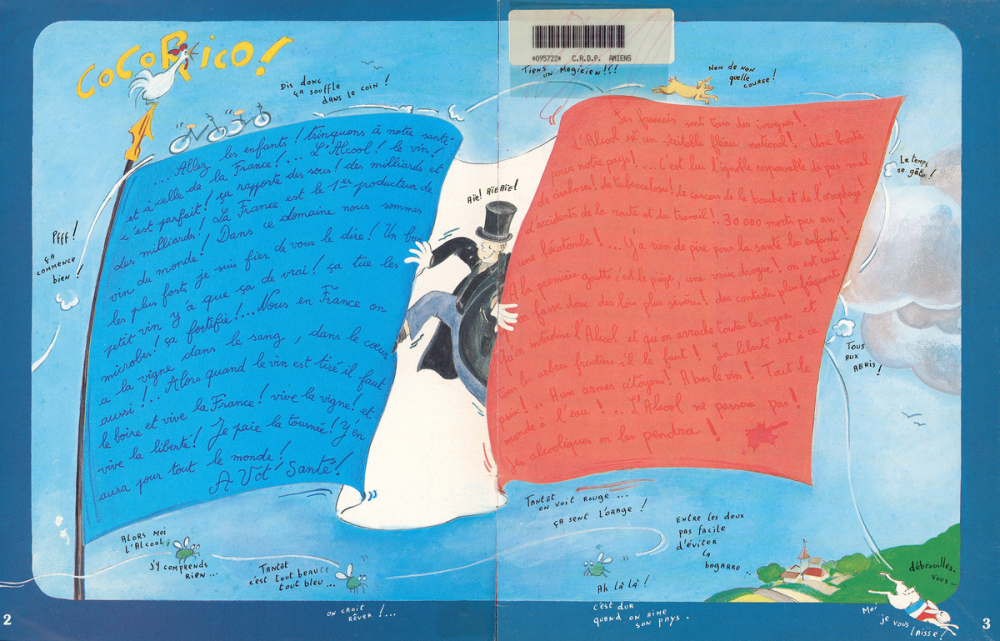 COCORICO !
Dis donc
ça souffle
dans le coin !
*095722* C.R.D.P. AMIENS
Tiens
un magicien!!!
Nom de non
quelle
course !
... Allez les enfants ! trinquons à notre santé
et à celle de la France !... L'Alcool ! le vin,
c'est parfait ! ça rapporte des sous ! des milliards et
des milliards ! La France est le 1er producteur de
vin du monde ! Dans ce domaine nous sommes
les plus forts je suis fier de vous le dire ! Un bon
petit vin y'a que ça de vrai ! ça tue les
microbes ! ça fortifie !... Nous en France on
a la vigne dans le sang, dans le cœur
aussi !.. Alors quand le vin est tiré il faut
le boire et vive la France ! vive la vigne ! et
vive la liberté ! Je paie la tournée ! Y'en
aura pour tout le monde !
A Vot' Santé !
Pfff !
ça
commence
bien !
Aïe! Aïe Aïe!
Les français sont tous des ivrognes !
L'Alcool est un véritable fléau national ! Une honte
pour notre pays ! est lui l'ignoble responsable de pas mal
de cirrhoses ! de tuberculoses ! de cancers de la bouche et de l'œsophage
d'accidents de la route et du travail ! 30 000 morts par an !
une hécatombe !... Y'a rien de pire pour la santé les enfants !
A la première goutte c'est le piège, une vraie drogue ! on est cuit
Qu'on fasse donc des lois plus sévères ! des contrôles plus fréquents
Qu'on interdise l'Alcool et qu'on arrache toutes les vignes et
tous les arbres fruitiers s'il le faut ! La liberté est à ce
prix !.. Aux armes citoyens ! A bas le vin ! Tout le
monde à l'eau ! .. L'Alcool ne passera pas !
Les alcooliques on les pendra !
Le temps
se gâte !
Tous
aux
abris !
Alors moi
l'Alcool,
j'y comprends
rien ...
Tantôt
c'est tout beau
tout bleu ...
on croit
rêver !...
Tantôt
on voit rouge ...
ça sent l'orage !
Entre les deux
pas facile
d'éviter
la
bagarre ..
Ah là là !
c'est dur
quand on aime
son pays .
débrouillez-
vous ...
Moi
je vous
laisse !
2
3